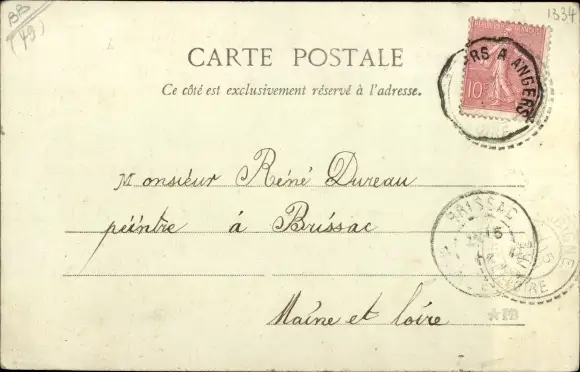 BB
(49)
1334
CARTE POSTALE
Ce côté est exclusivement réservé à l'adresse.
10
RS A ANGERS
Monsieur René Dureau
peintre à Brissac
BRISSAC
15
Maine et Loire